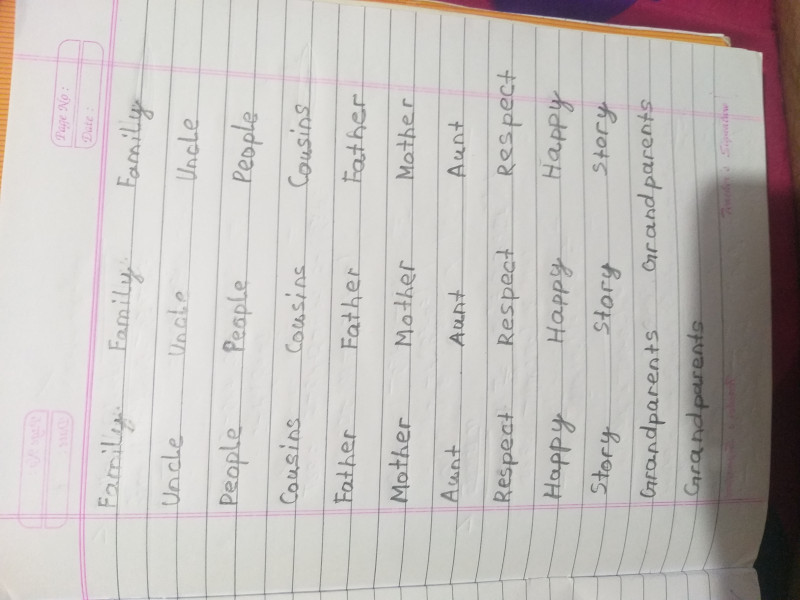 Page No:
Date:
Family. Family. Family
Uncle Uncle Uncle
People People People
Cousins Cousins Cousins
Father Father Father
Mother Mother Mother
Aunt Aunt Aunt
Respect Respect Respect
Happy Happy Happy
Story Story Story
Grandparents Grandparents
Grandparents